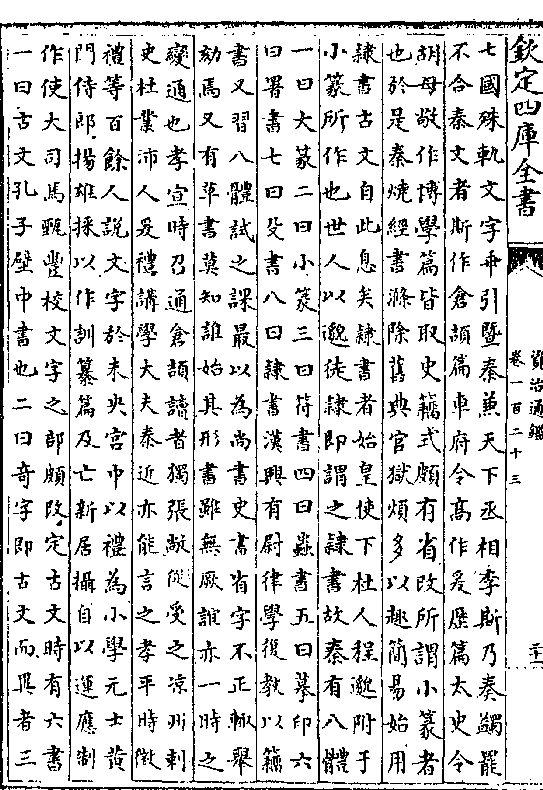 欽定四庫全書
資治通鑑
卷一百二十三
七國殊軌文字乖引暨秦兼天下丞相李斯乃奏蠲罷
不合秦文者斯作倉頡篇車府令高作爰歷篇太史令
胡母敬作博學篇皆取史籀式頗有省改所謂小篆者
也於是秦燒經書滌除舊典官獄煩多以趣簡易始用
隸書古文自此息矣隸書者始皇使下杜人程邈附于
小篆所作也世人以邈徒隸即謂之隸書故秦有八體
一曰大篆二曰小篆三曰符書四曰蟲書五曰摹印六
曰署書七曰殳書八曰隸書漢興有尉律學復教以籀
書又習八體試之課最以為尚書史書省字不正輙舉
劾焉又有草書莫知誰始其形書雖無厥誼亦一時之
變通也孝宣時召通倉頡讀者獨張敞從受之涼州刺
史杜鄴沛人爰禮講學大夫秦近亦能言之孝平時徴
禮等百餘人說文字於未央宮中以禮為小學元士黄
門侍郎揚雄採以作訓纂篇及亡新居攝自以運應制
作使大司馬甄豐校文字之部頗改定古文時有六書
一曰古文孔子壁中書也二曰奇字即古文而異者三